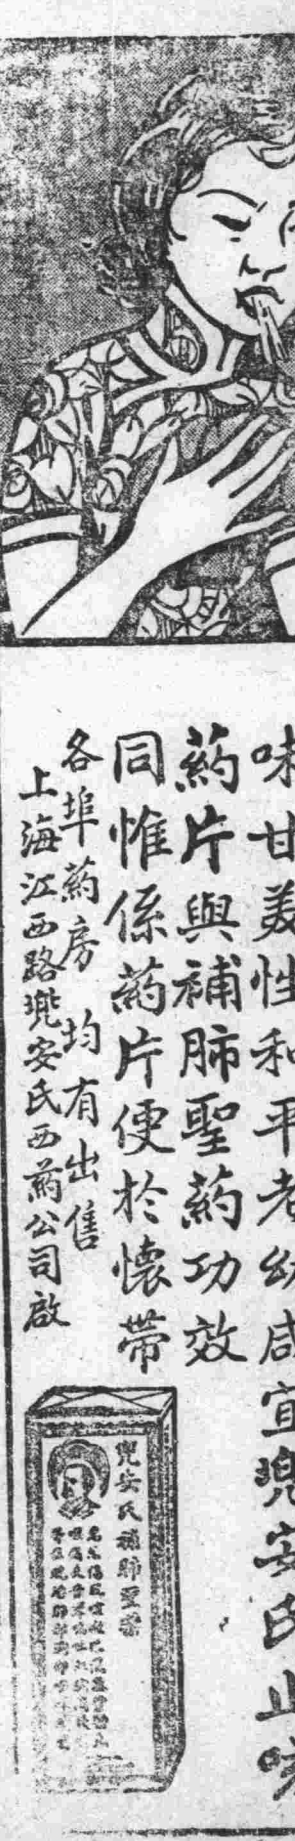 味甘美性和平老幼咸宜兜安氏止咳
藥片與補肺聖藥功效
同惟係藥片便於懷帶
各埠藥房均有出售
上海江西路兜安氏西藥公司啟
兜安氏補肺聖藥